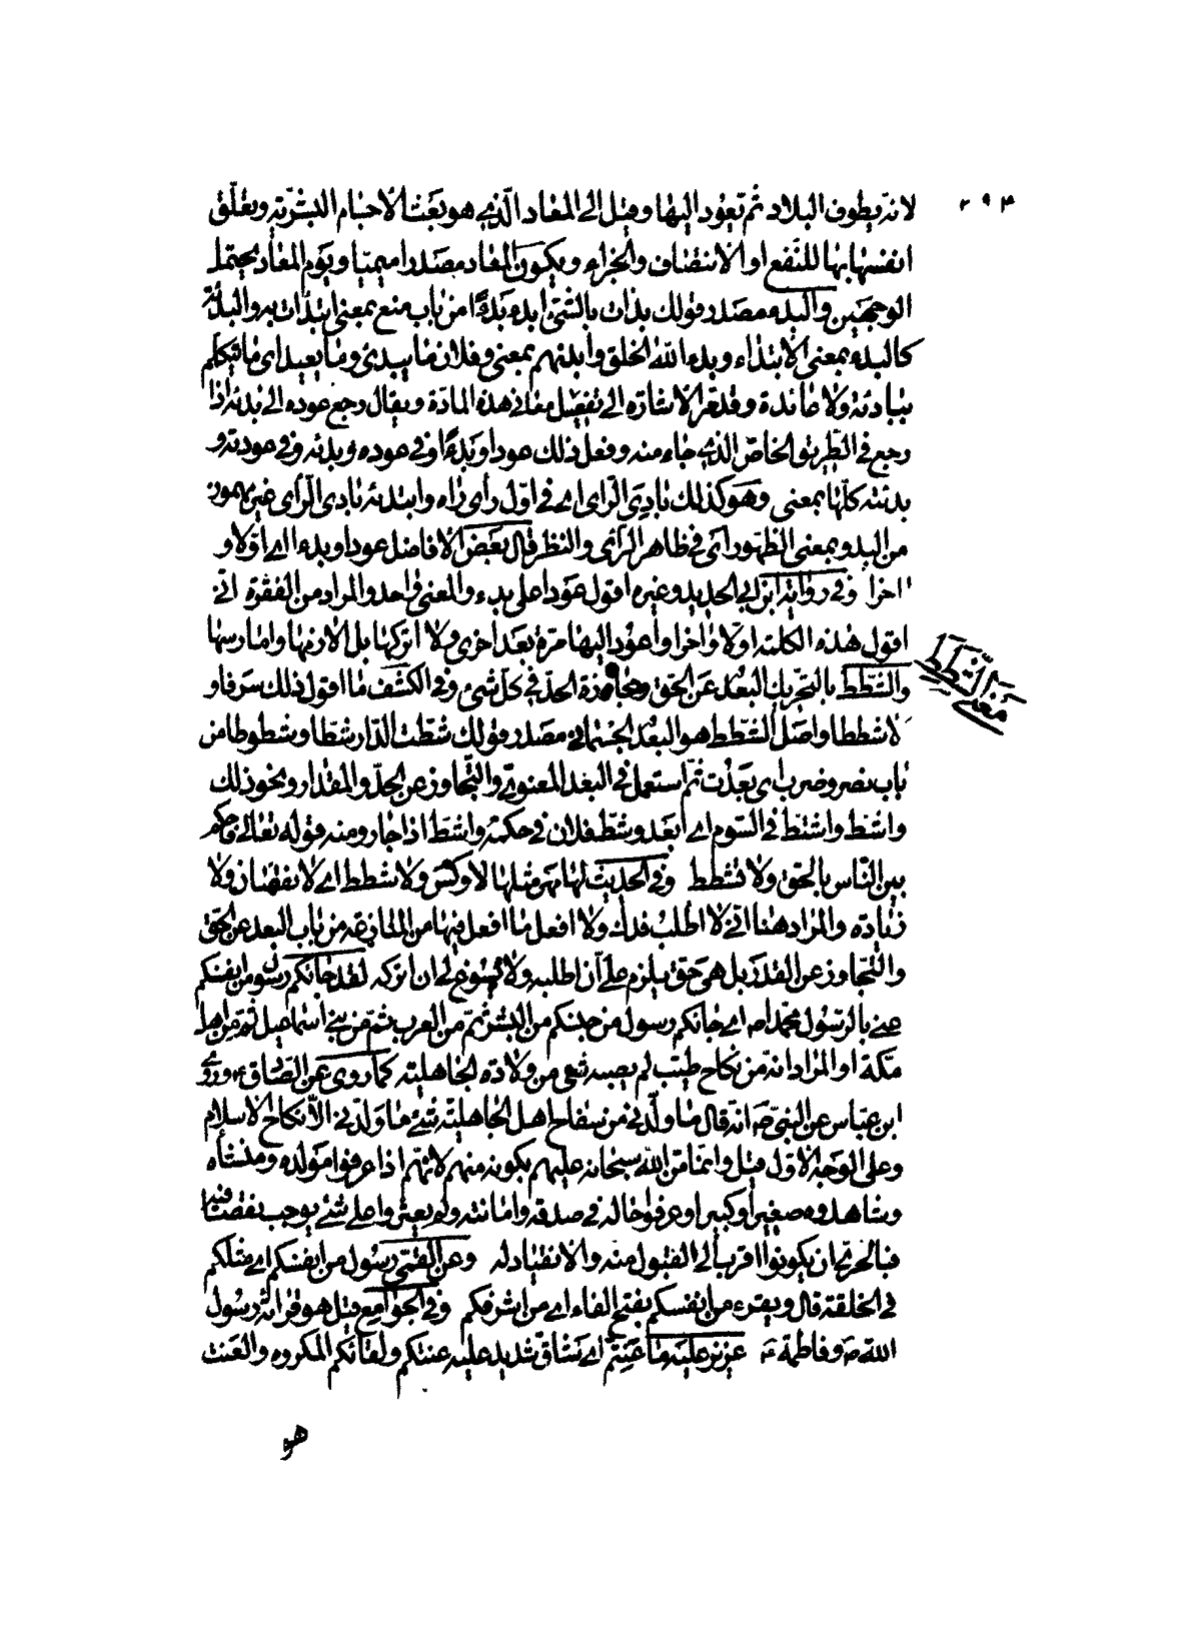 ٢٩٤
لانه يطوف البلاد ثم تعود اليها وقيل الى المعاد الذي هو بعث الاجسام البشرية وتعلق
انفسها بها للنفع او الانتصاف والجزاء ويكون المعاد مصدرا ميميا ويوم المعاد يحتمل
الوجهين والبدء مصدر قولك بدات بالشئ ابدء بَدءًا من باب منع بمعنى ابتدات به والبدئة
كالبدء بمعنى الابتداء وبدء الله الخلق وابدئهم بمعنى وفلان ما يبدئ وما يعيد اى ما يتكلم
ببادئة ولا عائدة وقد مر الاشارة الى تفصيل معانى هذه المادة ويقال رجع عوده الى بدئه اذا
رجع في الطريق الخاص الذي جاء منه وفعل ذلك عودا وبَدءًا وفي عوده وبدئه وفي عودته و
بدئته كلها بمعنى وهو كذلك بادئ الراى اى في اول رأى راه وابتدئه بادى الرأى غير مهموز
من البدو بمعنى الظهور اى في ظاهر الرأى والنظر قال بعض الافاضل عودا وبدءا اى اولا و
اخرا وفي رواية ابن ابي الحديد وغيره اقول عودا على بدء والمعنى واحد والمراد من الفقرة اني
اقول هذه الكلمة اولا واخرا واعود اليها مرة بعد اخرى ولا اتركها بل الازمها وامارسها
معنى الشطط
والشطط بالتحريك البعد عن الحق ومجاوزة الحد في كل شئ وفي الكشف ما اقول ذلك سرفا و
لا شططا واصل الشطط هو البعد الجسماني مصدر قولك شطت الدار شطا وشطوطا من
باب نصر وضرب اى بعدت ثم استعمل في البعد المعنوي والتجاوز عن الحد والمقدار ونحو ذلك
واشط واشتط في السوم اى ابعد وشط فلان في حكمه واشط اذا جار ومنه قوله تعالى فاحكم
بين الناس بالحق ولا تشطط وفي الحديث لها مهر مثلها لا وكس ولا شطط اى لا نقصان ولا
زيادة والمراد هنا اني لا اطلب فدك ولا افعل ما افعل فيها من المنازعة من باب البعد عن الحق
والتجاوز عن القدر بل هي حق يلزم على ان اطلبه ولا يسوغ لى ان اتركه لقد جائكم رسول من انفسكم
عنى بالرسول محمدا ص اى جائكم رسول من جنسكم من البشر ثم من العرب ثم من بنى اسماعيل ثم من اهل
مكة او المراد انه من نكاح طيب لم يصبه شئ من ولادة الجاهلية كما روى عن الصادق ع وروى
ابن عباس عن النبي ص انه قال ما ولدني من سفاح اهل الجاهلية شئ ما ولدني الا نكاح الاسلام
وعلى الوجه الاول قيل وانما من الله سبحانه عليهم بكونه منهم لانهم اذا عرفوا مولده ومنشأه
وشاهدوه صغيرا وكبيرا وعرفوا حاله في صدقه وامانته ولم يعثروا على شئ يوجب نقصا فيه
فبالحرى ان يكونوا اقرب الى القبول منه والانقياد له وعن القمي رسول من انفسكم اى مثلكم
في الخلقة قال ويقرء من انفسكم بفتح الفاء اى من اشرفكم وفي الجوامع قيل هو قرائة رسول
الله ص وفاطمة ع عزيز عليه ما عنتم اى شاق شديد عليه عنتكم ولقائكم المكروه والعنت
هو